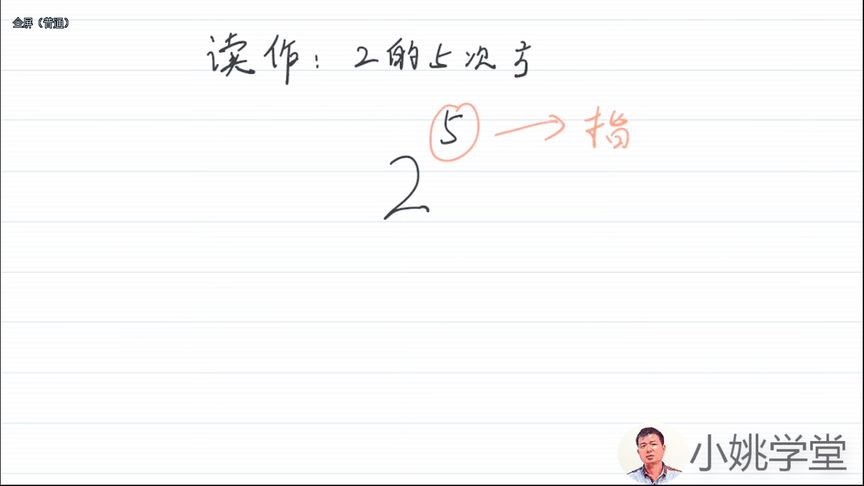 全屏（普通）
读作：2的5次方
5 → 指
2
小姚学堂